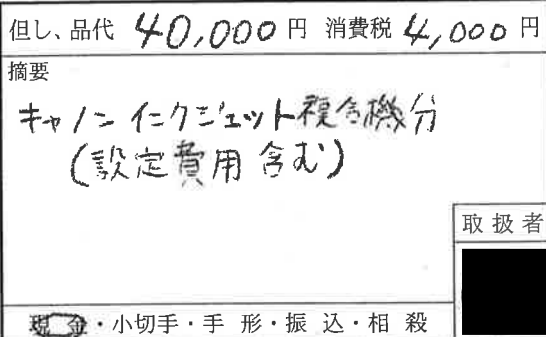 但し、品代 40,000 円 消費税 4,000 円
摘要
キャノン インクジェット複合機分
(設定費用含む)
取扱者
現金・小切手・手形・振込・相殺